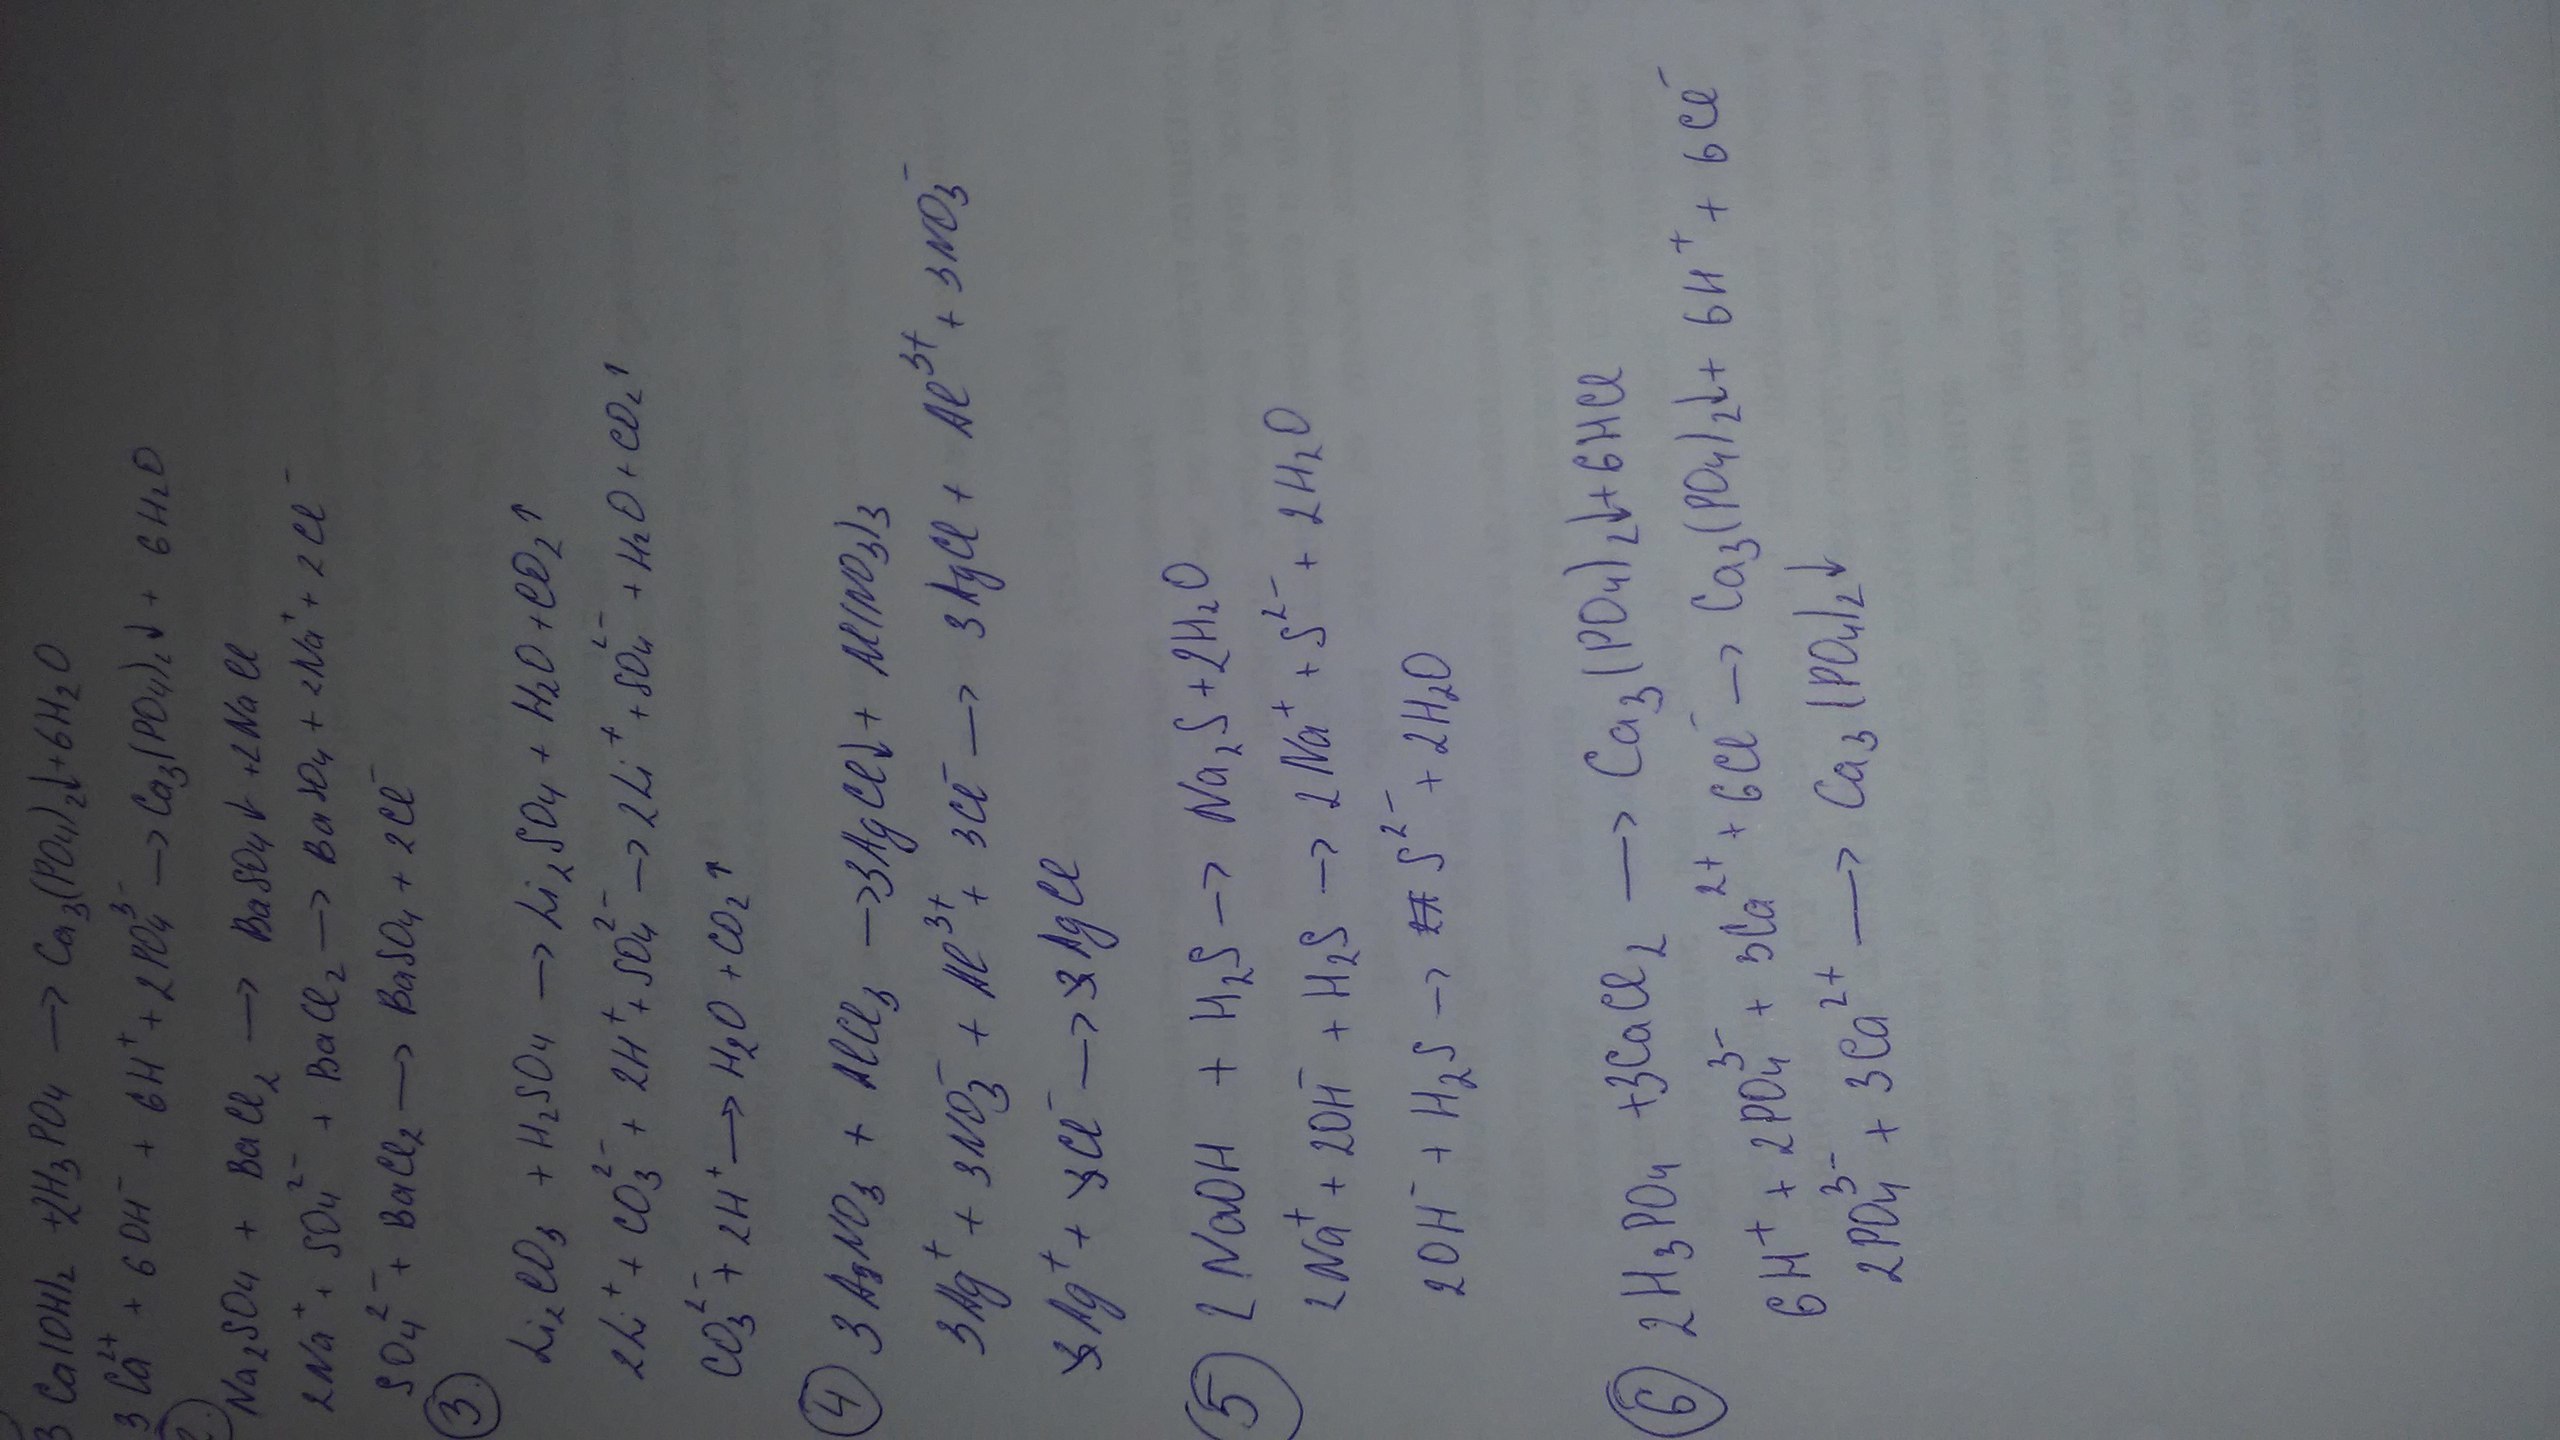 3 Ca(OH)₂ + 2H₃PO₄ → Ca₃(PO₄)₂↓ + 6H₂O
3 Ca²⁺ + 6OH⁻ + 6H⁺ + 2PO₄³⁻ → Ca₃(PO₄)₂↓ + 6H₂O
2.
Na₂SO₄ + BaCl₂ → BaSO₄↓ + 2NaCl
2Na⁺ + SO₄²⁻ + BaCl₂ → BaSO₄ + 2Na⁺ + 2Cl⁻
SO₄²⁻ + BaCl₂ → BaSO₄ + 2Cl⁻
3.
Li₂CO₃ + H₂SO₄ → Li₂SO₄ + H₂O + CO₂↑
2Li⁺ + CO₃²⁻ + 2H⁺ + SO₄²⁻ → 2Li⁺ + SO₄²⁻ + H₂O + CO₂↑
CO₃²⁻ + 2H⁺ → H₂O + CO₂↑
4 3AgNO₃ + AlCl₃ → 3AgCl↓ + Al(NO₃)₃
3Ag⁺ + 3NO₃⁻ + Al³⁺ + 3Cl⁻ → 3AgCl + Al³⁺ + 3NO₃⁻
Ag⁺ + Cl⁻ → AgCl
5 2NaOH + H₂S → Na₂S + 2H₂O
2Na⁺ + 2OH⁻ + H₂S → 2Na⁺ + S²⁻ + 2H₂O
2OH⁻ + H₂S → S²⁻ + 2H₂O
6 2H₃PO₄ + 3CaCl₂ → Ca₃(PO₄)₂↓ + 6HCl
6H⁺ + 2PO₄³⁻ + 3Ca²⁺ + 6Cl⁻ → Ca₃(PO₄)₂↓ + 6H⁺ + 6Cl⁻
2PO₄³⁻ + 3Ca²⁺ → Ca₃(PO₄)₂↓